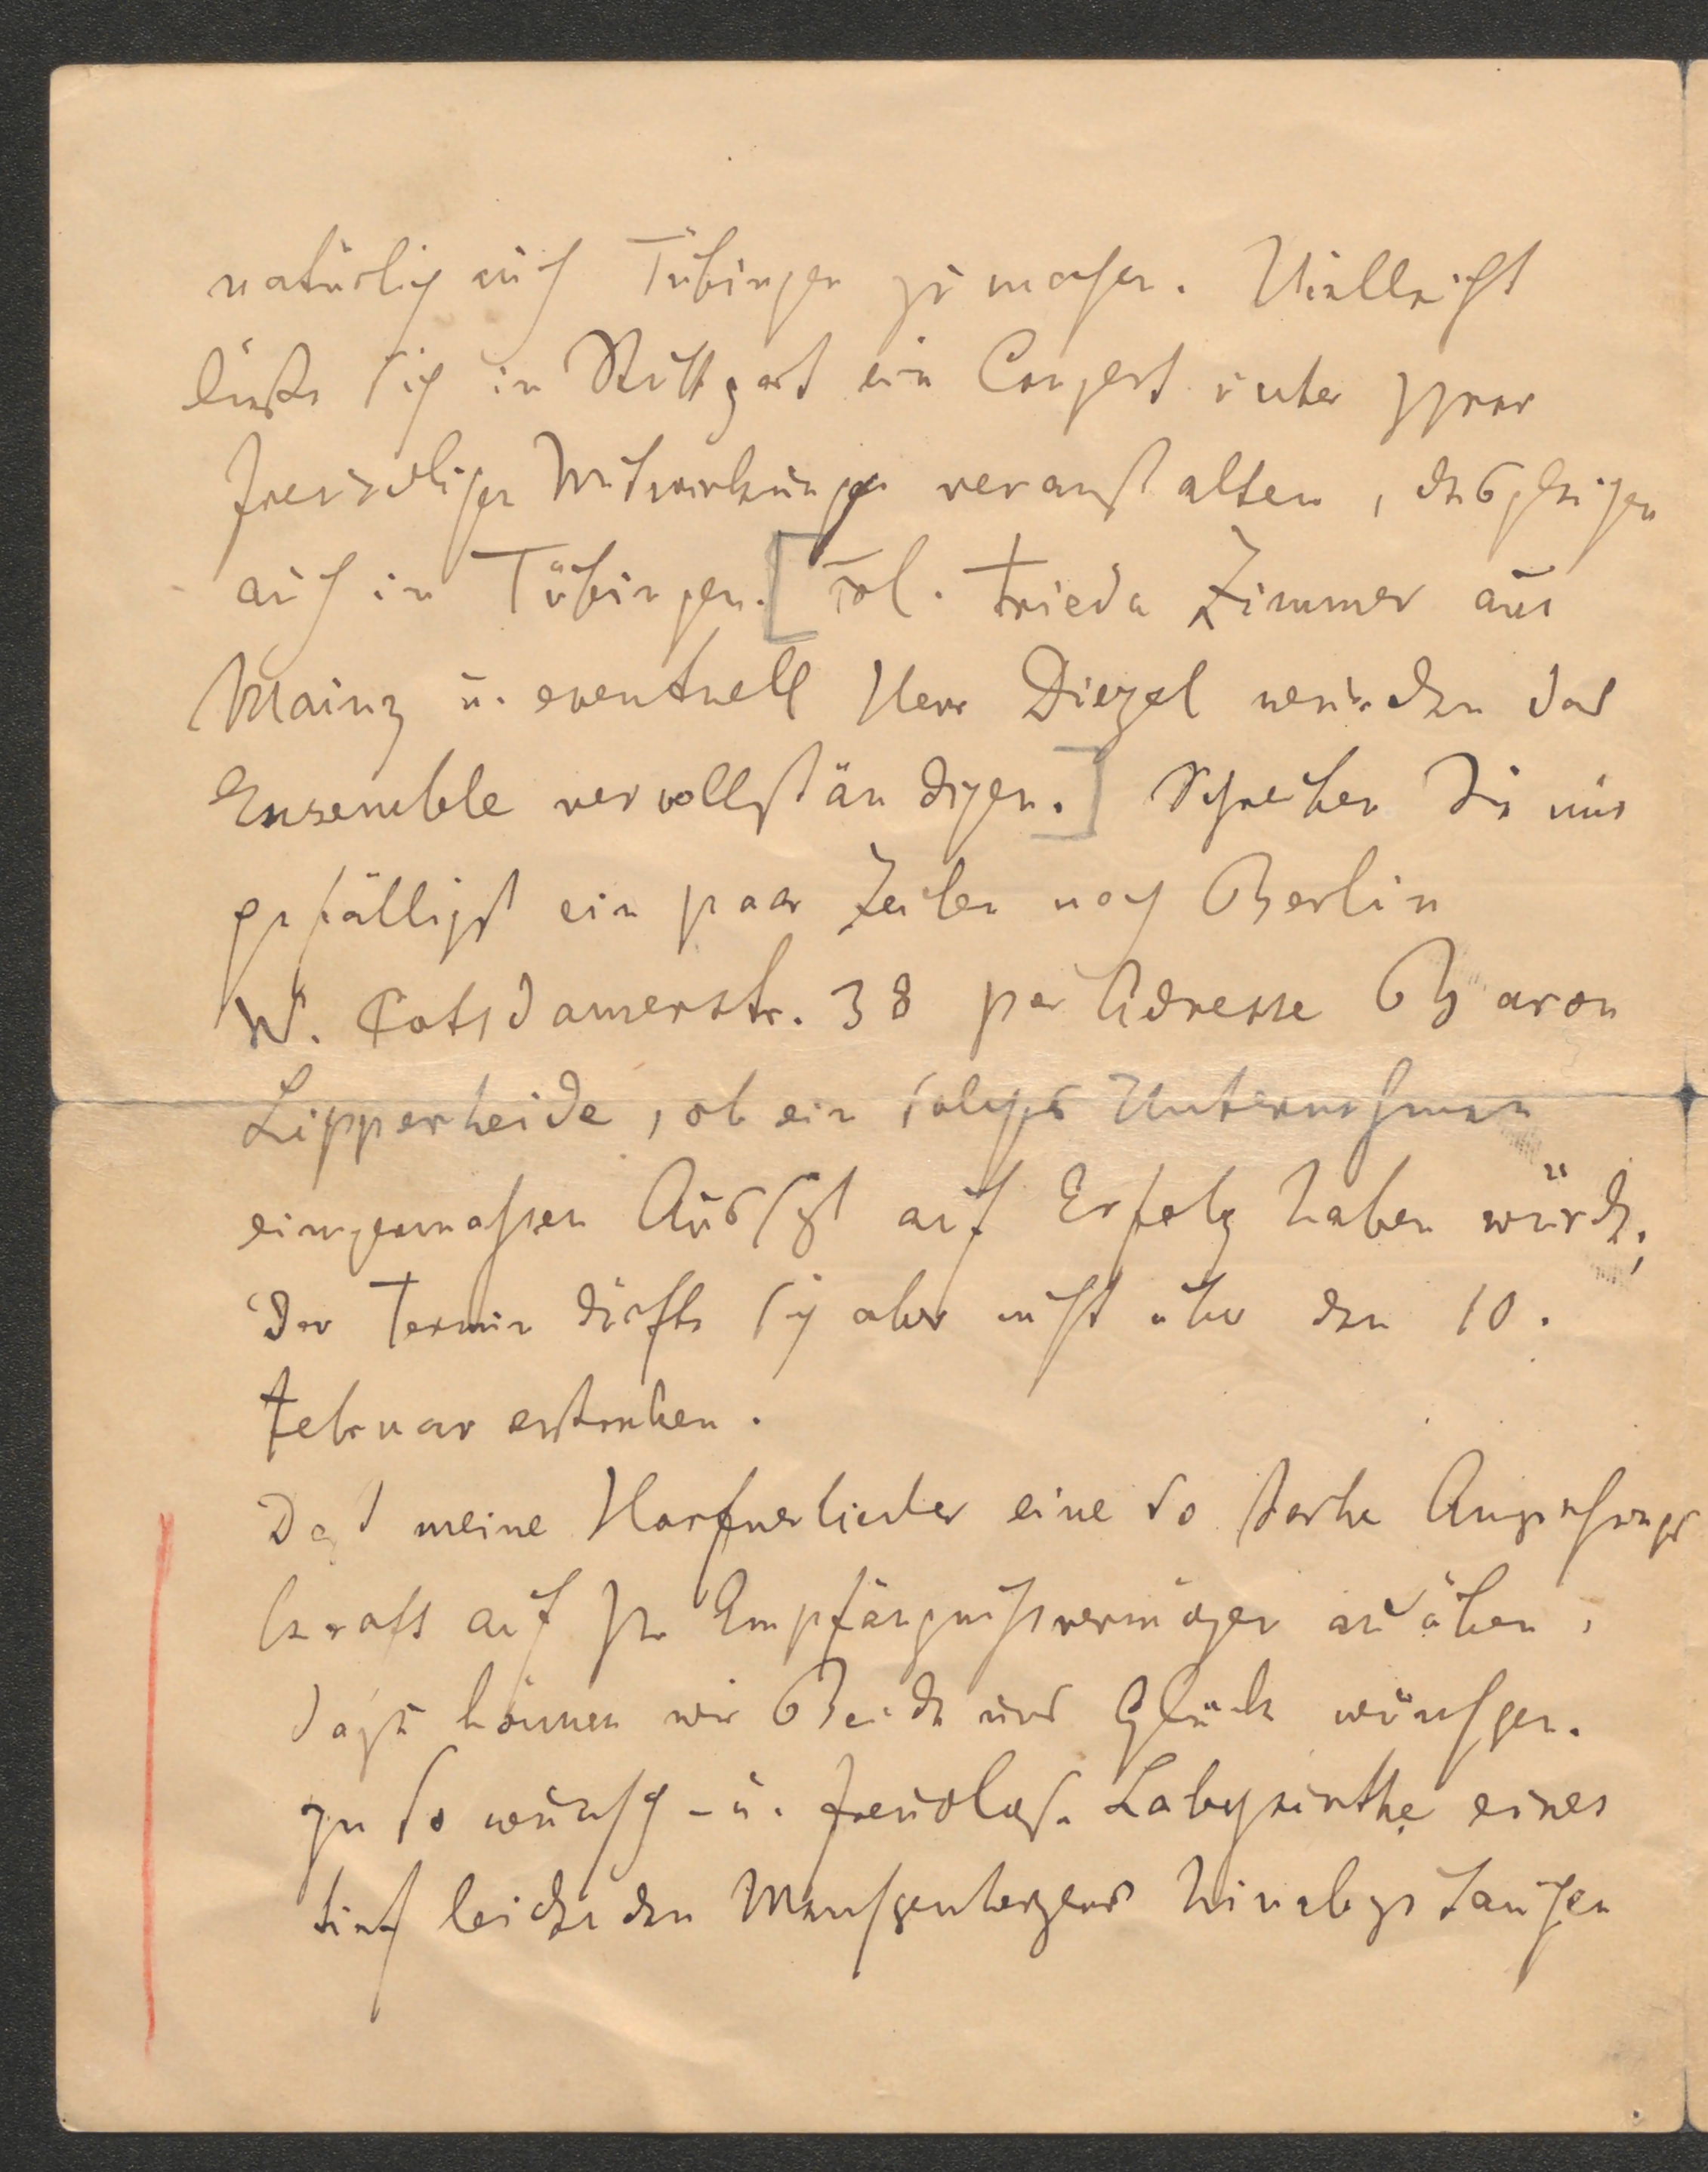 natürlich auch Tübingen zu machen. Vielleicht
ließe sich in Stuttgart ein Conzert unter Ihrer
freundlichen Mitwirkung veranstalten, desgleichen
auch in Tübingen. [Frl. Frieda Zimmer aus
Mainz u. eventuell Herr Diezel würden das
Ensemble vervollständigen.] Schreiben Sie mir
gefälligst ein paar Zeilen nach Berlin
W. Potsdamerstr. 38 per Adresse Baron
Lipperheide, ob ein solches Unternehmen
einigermassen Aussicht auf Erfolg haben würde;
der Termin dürfte sich aber nicht über den 10.
Februar erstrecken.
Daß meine Harfnerlieder eine so starke Anziehungs
kraft auf Ihr Empfängnißvermögen ausüben,
dazu können wir Beide uns Glück wünschen.
In so wunsch- u. freudlose Labyrinthe eines
tief leidenden Menschenherzens hinabzutauchen